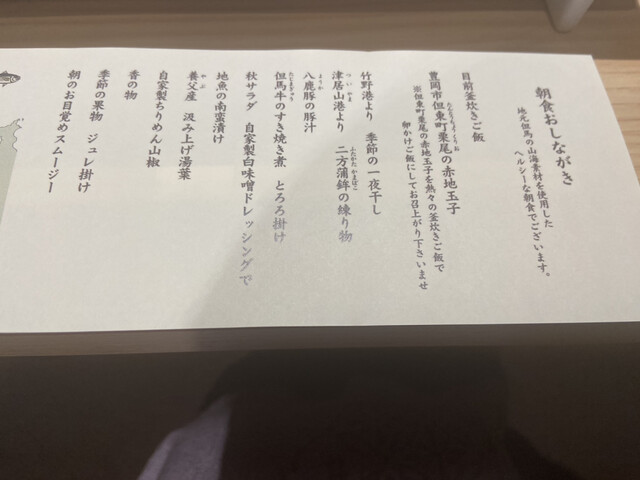 朝食おしながき
地元但馬の山海素材を使用した
ヘルシーな朝食でございます。
目前釜炊きご飯
豊岡市但東町栗尾の赤地玉子
※但東町栗尾の赤地玉子を熱々の釜炊きご飯で
卵かけご飯にしてお召上がり下さいませ
竹野港より 季節の一夜干し
津居山港より 二方蒲鉾の練り物
八鹿豚の豚汁
但馬牛のすき焼き煮 とろろ掛け
秋サラダ 自家製白味噌ドレッシングで
地魚の南蛮漬け
養父産 汲み上げ湯葉
自家製ちりめん山椒
香の物
季節の果物 ジュレ掛け
朝のお目覚めスムージー